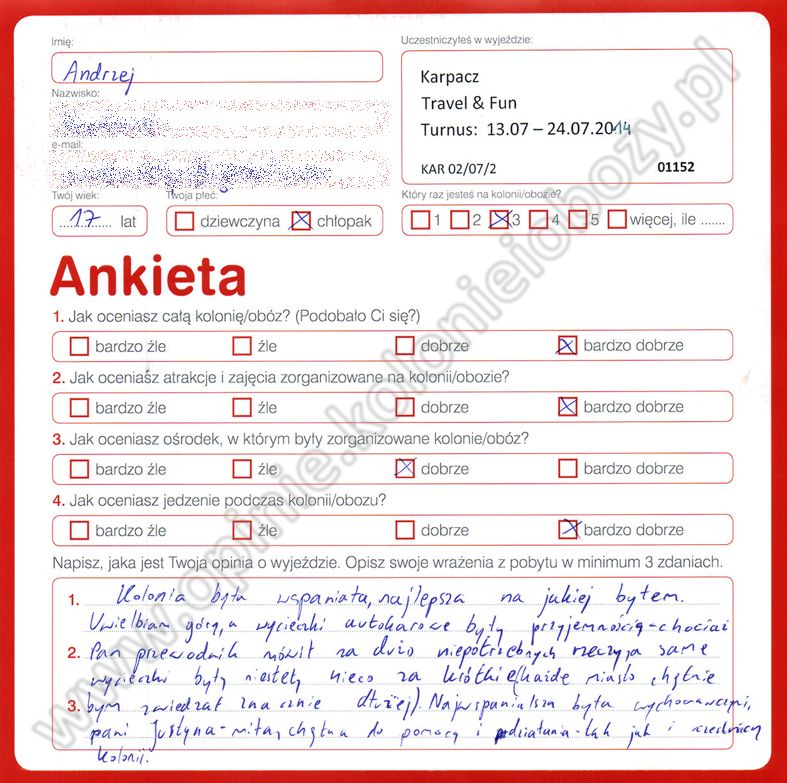 Imię:
Andrzej
Nazwisko:
e-mail:
Twój wiek:
17 lat
Twoja płeć:
dziewczyna chłopak
Uczestniczyłeś w wyjeździe:
Karpacz
Travel & Fun
Turnus: 13.07 – 24.07.2014
KAR 02/07/2 01152
Który raz jesteś na kolonii/obozie?
1 2 3 4 5 więcej, ile .......
Ankieta
1. Jak oceniasz całą kolonię/obóz? (Podobało Ci się?)
bardzo źle źle dobrze bardzo dobrze
2. Jak oceniasz atrakcje i zajęcia zorganizowane na kolonii/obozie?
bardzo źle źle dobrze bardzo dobrze
3. Jak oceniasz ośrodek, w którym były zorganizowane kolonie/obóz?
bardzo źle źle dobrze bardzo dobrze
4. Jak oceniasz jedzenie podczas kolonii/obozu?
bardzo źle źle dobrze bardzo dobrze
Napisz, jaka jest Twoja opinia o wyjeździe. Opisz swoje wrażenia z pobytu w minimum 3 zdaniach.
1. Kolonia była wspaniała, najlepsza na jakiej byłem.
Uwielbiam góry, a wycieczki autokarowe były przyjemnością - chociaż
2. Pan przewodnik mówił za dużo niepotrzebnych rzeczy, a same
wycieczki były niestety nieco za krótkie (każde miasto chętnie
3. bym zwiedzał znacznie dłużej). Najwspanialsza była wychowawczyni,
pani Justyna - miła, chętna do pomocy i działania - tak jak i uczestnicy
kolonii.
www.opinie.kolonieiobozy.pl